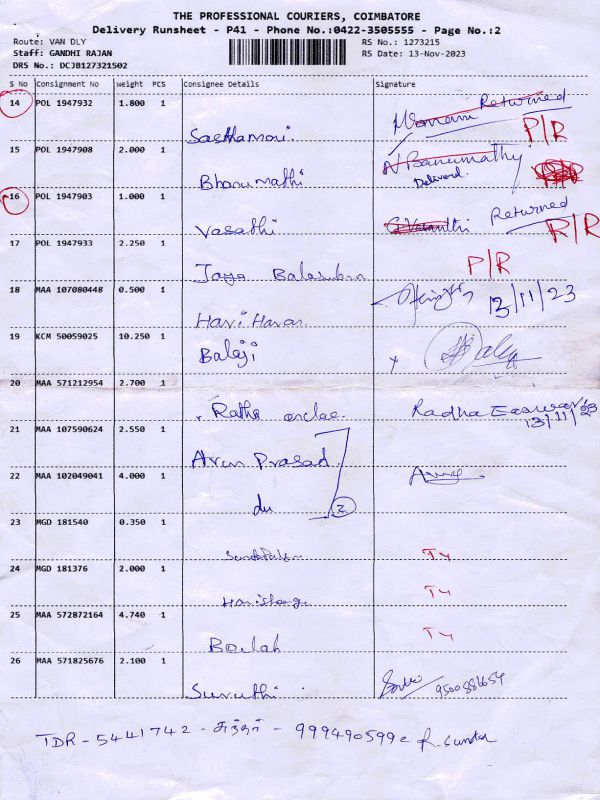 THE PROFESSIONAL COURIERS, COIMBATORE
Delivery Runsheet - P41 - Phone No.:0422-3505555 - Page No.:2
Route: VAN DLY RS No.: 1273215
Staff: GANDHI RAJAN RS Date: 13-Nov-2023
DRS No.: DCJB127321502
S No Consignment No Weight PCS Consignee Details Signature
14 POL 1947932 1.800 1 Returned
P/R
15 POL 1947908 2.000 1 Bhanumathi N Banumathy
Delivered
16 POL 1947903 1.000 1 Vasathi Returned
R/R
17 POL 1947933 2.250 1 Jaya P/R
18 MAA 107080448 0.500 1 Hari Haran 13/11/23
19 KCM 50059025 10.250 1 Balaji
20 MAA 571212954 2.700 1 Radha Easwar
13/11/23
21 MAA 107590624 2.550 1 Arun Prasad
22 MAA 102049041 4.000 1 du 2
23 MGD 181540 0.350 1
24 MGD 181376 2.000 1
25 MAA 572872164 4.740 1
26 MAA 571825676 2.100 1 Suruthi
TDR - 5441742 -